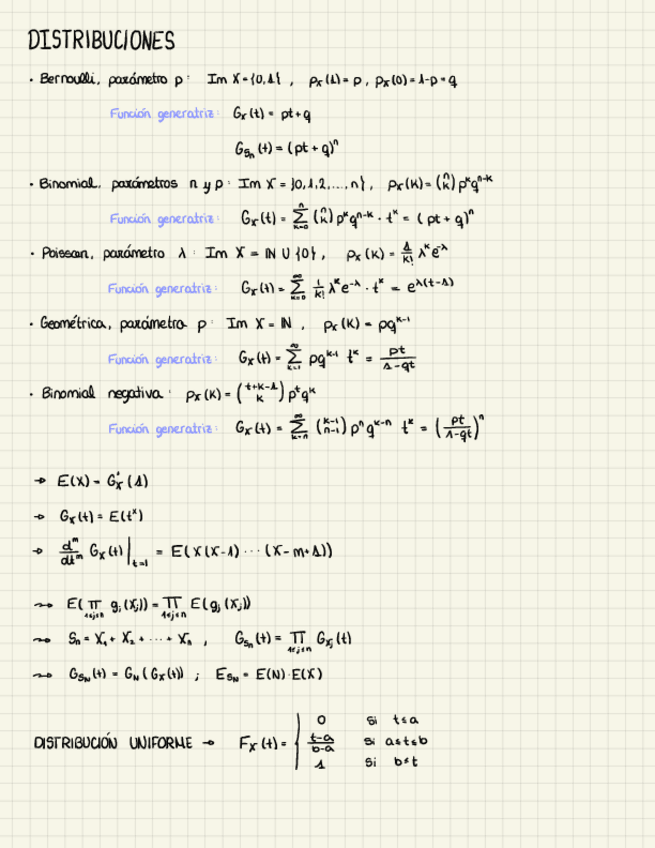 DISTRIBUCIONES
• Bernoulli, parámetro p: Im X = {0,1} , p_X(1) = p , p_X(0) = 1-p = q
Función generatriz: G_X(t) = pt + q
G_{S_n}(t) = (pt + q)^n
• Binomial, parámetros n y p: Im X = {0,1,2,...,n} , p_X(k) = (n k) p^k q^{n-k}
Función generatriz: G_X(t) = ∑_{k=0}^{n} (n k) p^k q^{n-k} · t^k = (pt + q)^n
• Poisson, parámetro λ: Im X = ℕ ∪ {0} , p_X(k) = 1/k! λ^k e^{-λ}
Función generatriz: G_X(t) = ∑_{k=0}^{∞} 1/k! λ^k e^{-λ} · t^k = e^{λ(t-1)}
• Geométrica, parámetro p: Im X = ℕ , p_X(k) = pq^{k-1}
Función generatriz: G_X(t) = ∑_{k=1}^{∞} pq^{k-1} t^k = pt/(1-qt)
• Binomial negativa: p_X(k) = (t+k-1 k) p^t q^k
Función generatriz: G_X(t) = ∑_{k=n}^{∞} (k-1 n-1) p^n q^{k-n} t^k = (pt/(1-qt))^n
→ E(X) = G'_X(1)
→ G_X(t) = E(t^X)
→ d^m/dt^m G_X(t) |_{t=1} = E(X(X-1) ··· (X-m+1))
⇝ E(∏_{1≤j≤n} g_j(X_j)) = ∏_{1≤j≤n} E(g_j(X_j))
⇝ S_n = X_1 + X_2 + ··· + X_n , G_{S_n}(t) = ∏_{1≤j≤n} G_{X_j}(t)
⇝ G_{S_N}(t) = G_N(G_X(t)) ; E_{S_N} = E(N)·E(X)
DISTRIBUCIÓN UNIFORME → F_X(t) = { 0 si t≤a
(t-a)/(b-a) si a≤t≤b
1 si b≤t